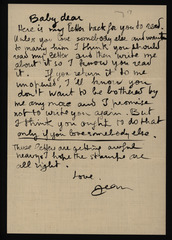 Baby dear
Here is my letter back for you to read.
Unless you love somebody else and want
to marry him I think you should
read my letter and then write me
about it so I know you read
it. If you return it to me
unopened, I'll know you
don't want to be bothered by
me any more and I promise
not to write you again. But
I think you ought to do that
only if you love somebody else.
These letters are getting awful
heavy I hope the stamps are
all right.
Love.
Jean